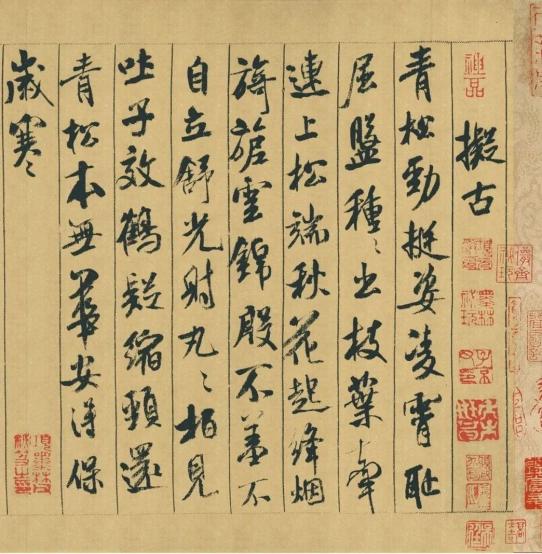 神品
擬古
青松勁挺姿凌霄恥
屈盤種〻出枝葉牽
連上松端秋花起絳烟
旖旎雲錦殷不羞不
自立舒光射丸〻柏見
吐子效鶴疑縮頸還
青松本無華安得保
歲寒〻